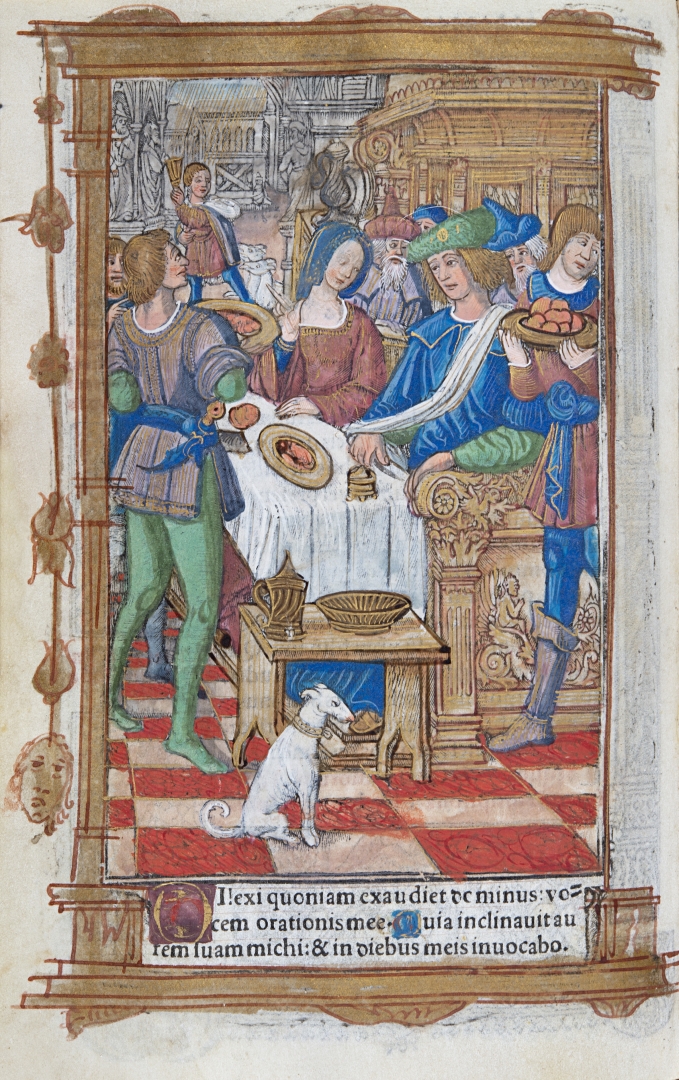 DIlexi quoniam exaudiet dominus: vo=
cem orationis mee. Quia inclinauit au
rem ſuam michi: & in diebus meis inuocabo.